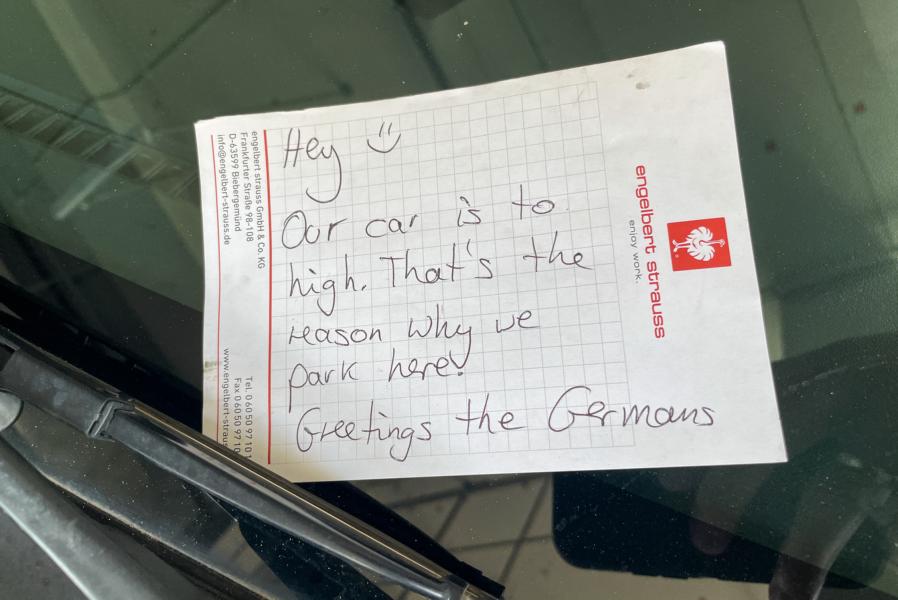 Hey
Our car is to
high. That's the
reason why we
park here!
Greetings the Germans
engelbert strauss
enjoy work.
engelbert strauss GmbH & Co. KG
Frankfurter Straße 98-108
D-63599 Biebergemünd
info@engelbert-strauss.de
Tel. 0 60 50 97 10
Fax 0 60 50 97 1